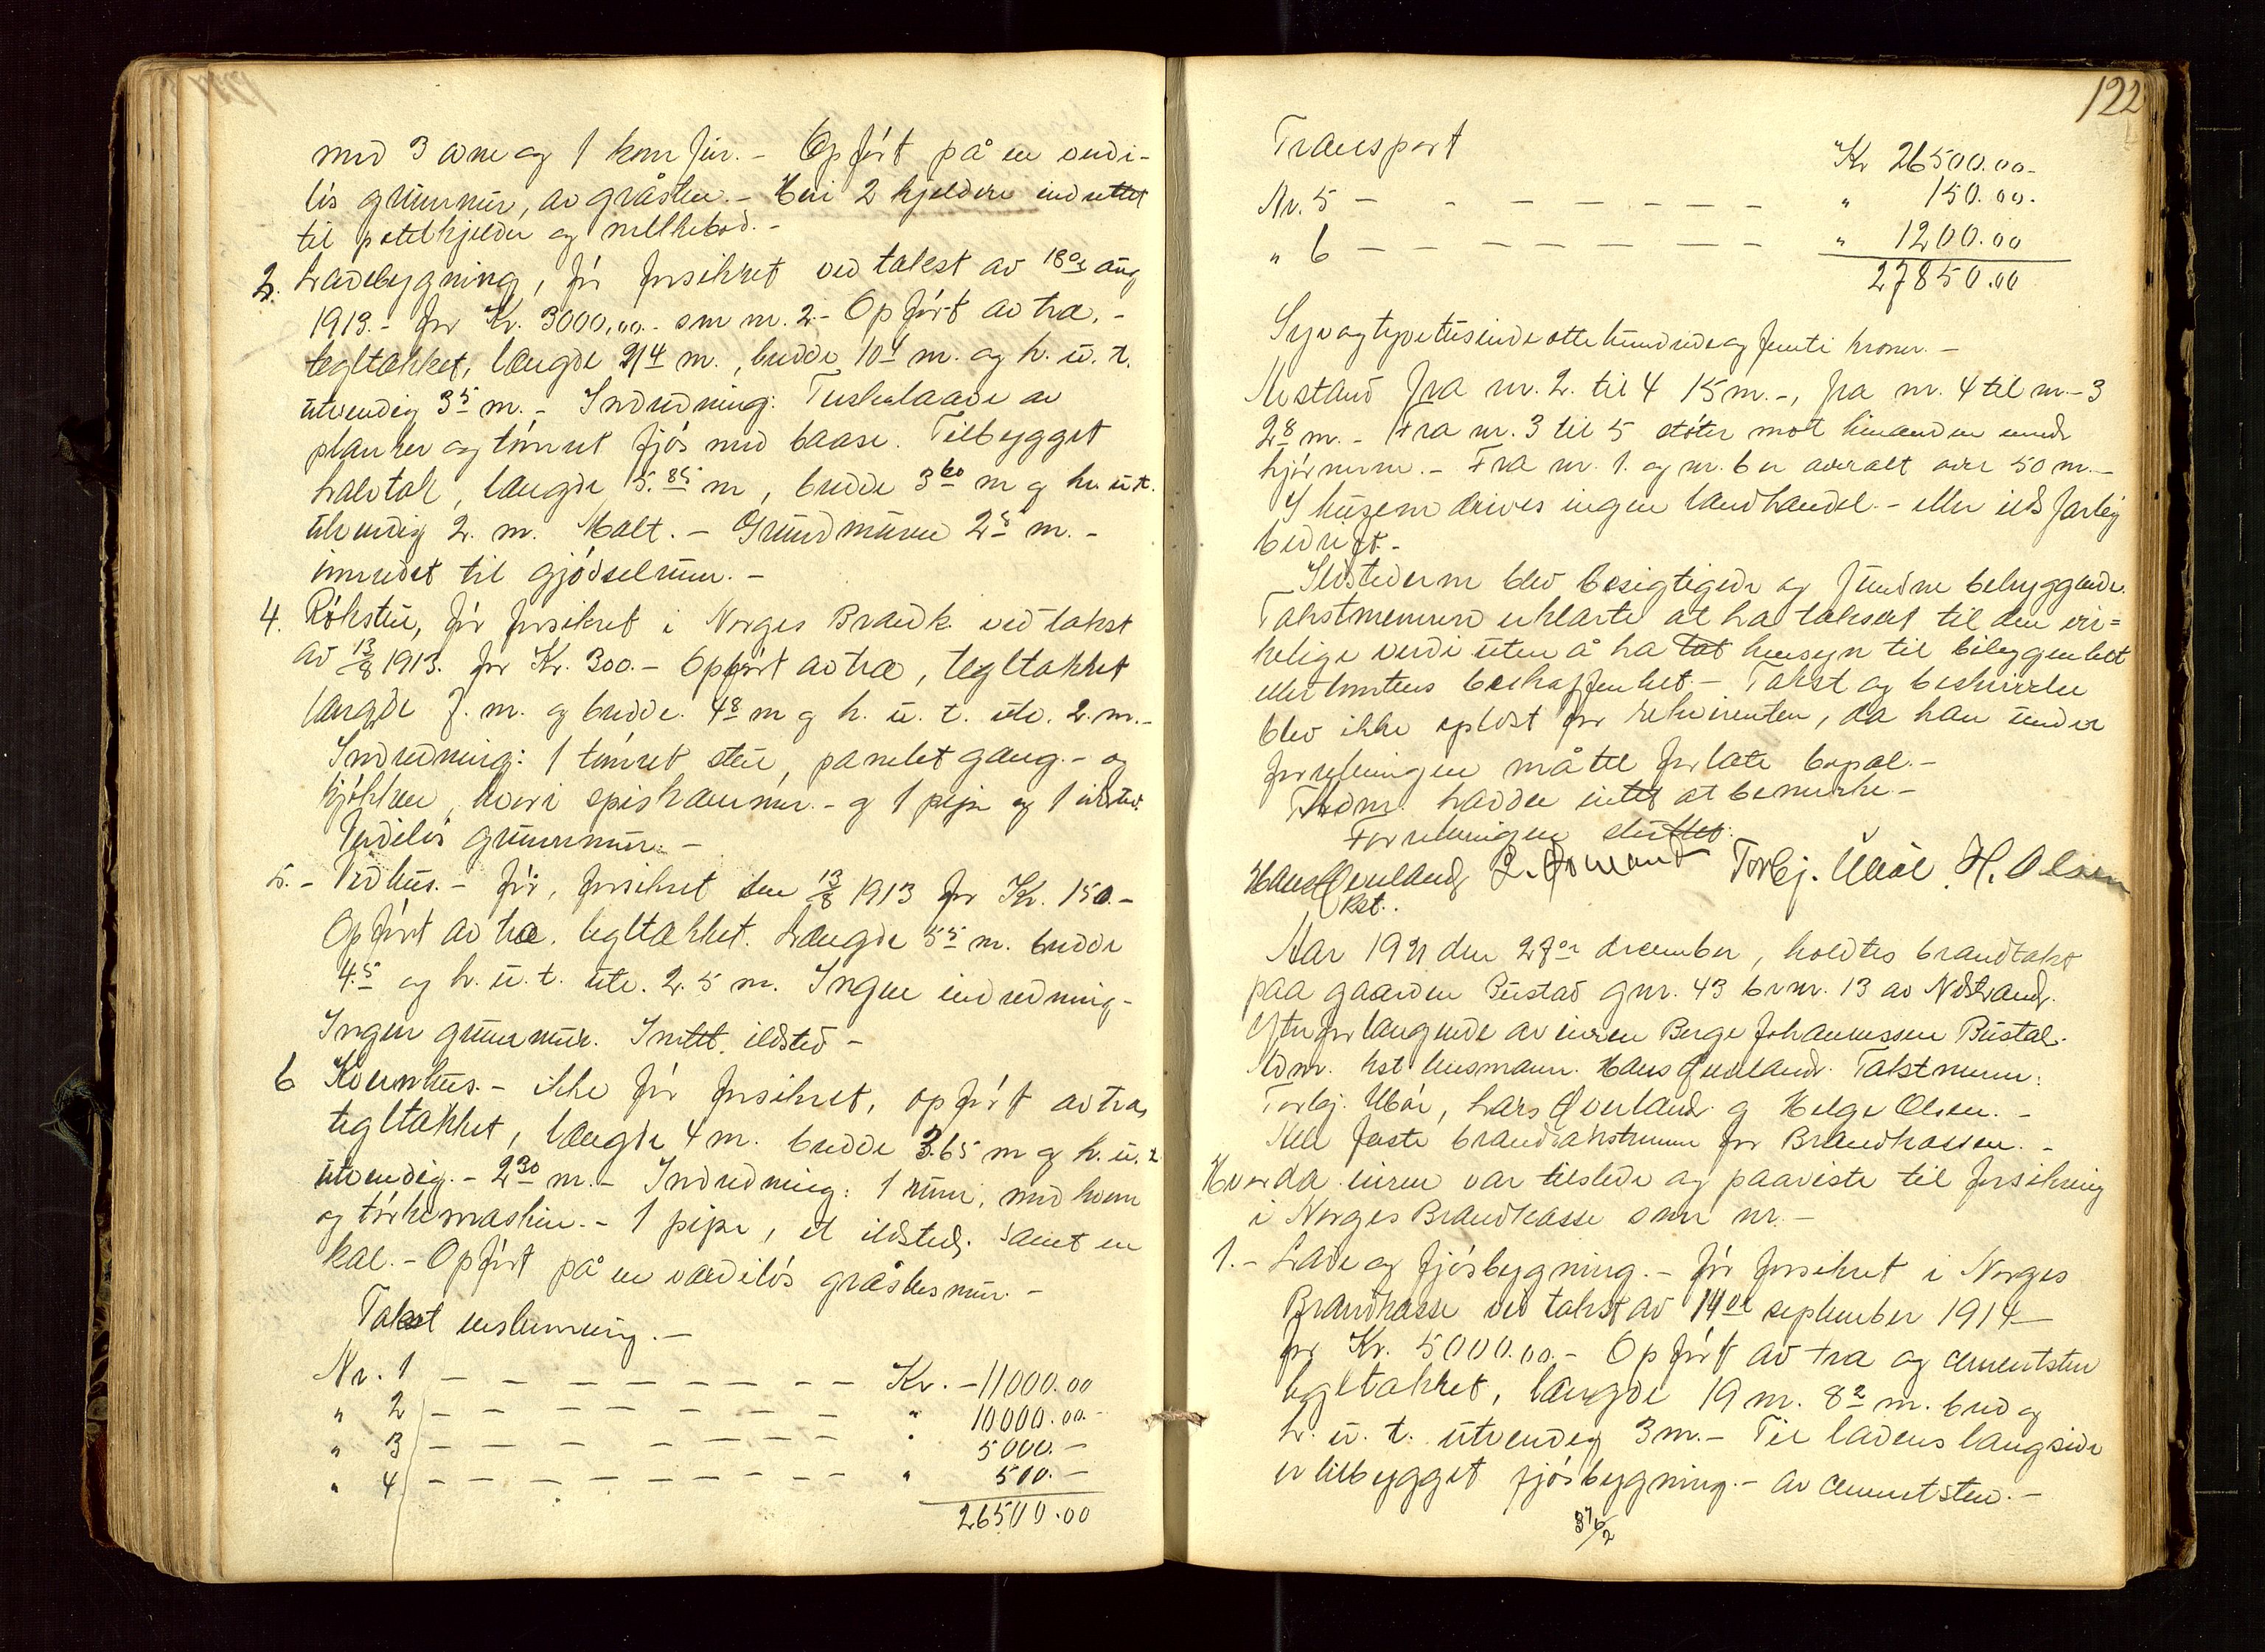 med 3 ovne og 1 komfür. - Opført på en verdi-
løs grunmur, av gråsten. - Heri 2 kjeldere indrettet
til potetkjelder og melkebod. -
3. Ladebygning, før forsikret ved takst av 18de aug
1913. - for Kr. 3000,00. - som nr. 2. - Opført av træ, -
tegltækket, længde 21 4 m., bredde 10 4 m. og h. u. t.
utvendig 3 5 m. - Indredning: Treskelaade av
planker og tømret fjøs med baase. Tilbygget
halvtak, længde 5.85 m, bredde 3 60 m og h. u. t.
utvendig 2. m. Malt. - Grundmuren 2 5 m. -
innredet til gjødselrum. -
4. Røkstue, før forsikret i Norges Brandk. ved takst
av 13/8 1913. for Kr. 300. - Opført av træ, tegltækket
længde 7. m. og bredde. 4 8 m og h. u. t. utv. 2. m. -
Indredning: 1 tømret stue, panelet gang. - og
kjøkken, hvori spiskammer. - og 1 pipe og 1 ildsted.
Verdiløs grunnmur. -
5. - Vedhus. - før, forsikret den 13/8 1913 for Kr. 150. -
Opført av træ, tegltækket. Længde 5 5 m. bredde
4.5 og h. u. t. utv. 2.5 m. Ingen indredning -
Ingen grunnmur. Intet ildsted -
6 Kvernhus. - ikke før forsikret, opført av træ,
tegltækket, længde 4 m. bredde 3.65 m og h. u. t
utvendig. - 2 30 m. - Indredning: 1 rum, med kvern
og tørkemaskin. - 1 pipe, et ildsted. samt en
kal. - Opført på en værdiløs gråstensmur. -
Takst
Nr. 1 - - - - - - - - - Kr. - 11000.00
" 2 - - - - - - - - " 10000.00. -
" 3 - - - - - - - - " 5000. -
" 4 - - - - - - - - - " 500. -
26500.00
122
Transport Kr 26500.00-
Nr. 5 - - - - - - - - - " 150.00.
" 6 - - - - - - - - - " 1200.00
27850.00
Syv og tyvetusinde otte hundrede og femti kroner. -
Avstand fra nr. 2. til 4 15 m. -, fra nr. 4 til nr. - 3
2 8 m. - Fra nr. 3 til 5 støter mot hinanden med
hjørnerne. - Fra nr. 1. og nr. 6 er overalt over 50 m. -
I husene drives ingen landhandel. - eller ildsfarlig
bedrift. -
Ildstederne blev besigtigede og fundne betryggende.
Takstmennene erklærte at ha taksert til den vir=
kelige verdi uten å ha tat hensyn til beliggenhet
eller tomtens beskaffenhet. - Takst og beskrivelse
blev ikke oplest for rekvirenten, da han under
forretningen måtte forlate bopæl. -
Lensm. hadde intet at bemerke -
Forretningen sluttet.
Hans Øverland L. Torbj. H. Olsen
kst.
Aar 1921 den 27de december, holdtes brandtakst
paa gaarden Bustad gnr. 43 brnr. 13 av Nedstrand.
Efter forlangende av eieren Berge Johannessen Bustad.
Adm. kst lensmann. Hans Øverland. Takstmenn:
Torbj. Lars Øverland og Helge Olsen. -
Alle faste brandtakstmenn for Brandkassen. -
Hvorda eieren var tilstede og paaviste til forsikring
i Norges Brandkasse som nr. -
1. - Lade og fjøsbygning. - før forsikret i Norges
Brandkasse ved takst av 14de september 1914
for Kr. 5000.00. - Opført av træ og cementsten
tegltækket, længde 19 m. 8 2 m. bred og
h. u. t. utvendig 3 m. - Til ladens langside
er tilbygget fjøsbygning. - av cementsten. -